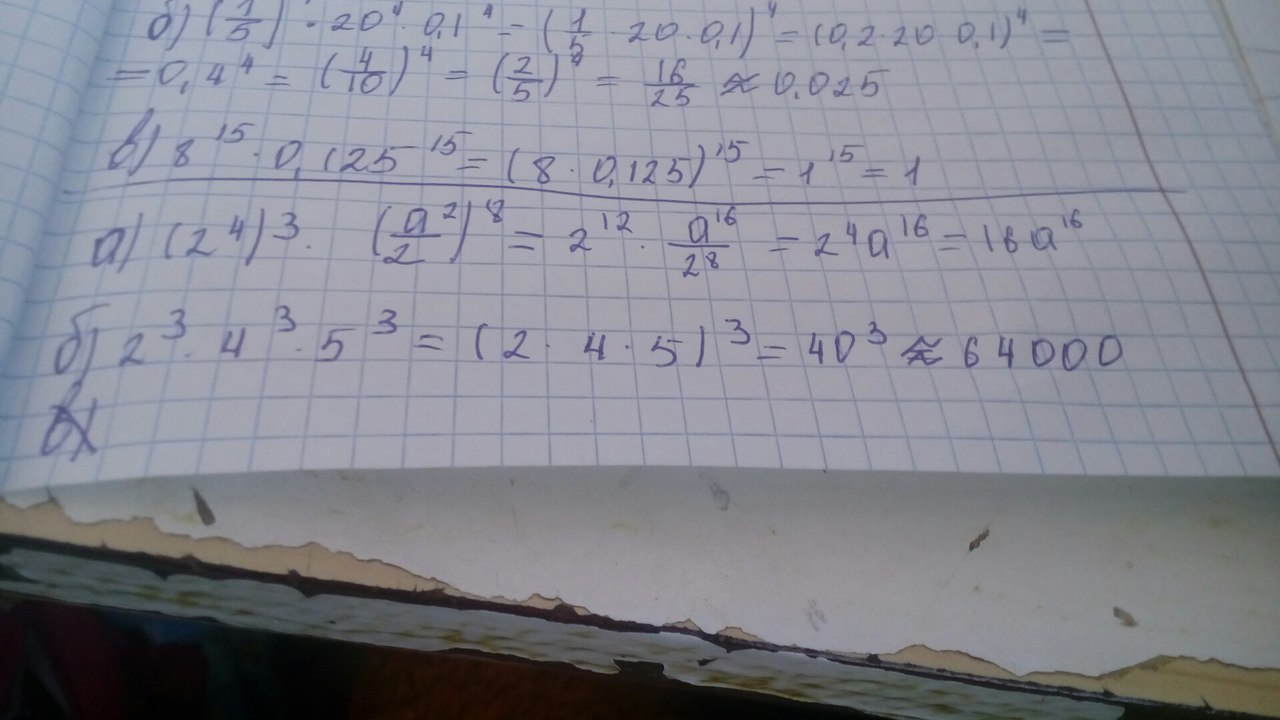 б) (1/5) · 20⁴ · 0,1⁴ = (1/5 · 20 · 0,1)⁴ = (0,2 · 20 · 0,1)⁴ =
= 0,4⁴ = (4/10)⁴ = (2/5)⁴ = 16/25 ≈ 0,025
в) 8¹⁵ · 0,125¹⁵ = (8 · 0,125)¹⁵ = 1¹⁵ = 1
а) (2⁴)³ · (a²/2)⁸ = 2¹² · a¹⁶/2⁸ = 2⁴a¹⁶ = 16a¹⁶
б) 2³ · 4³ · 5³ = (2 · 4 · 5)³ = 40³ ≈ 64000
в)